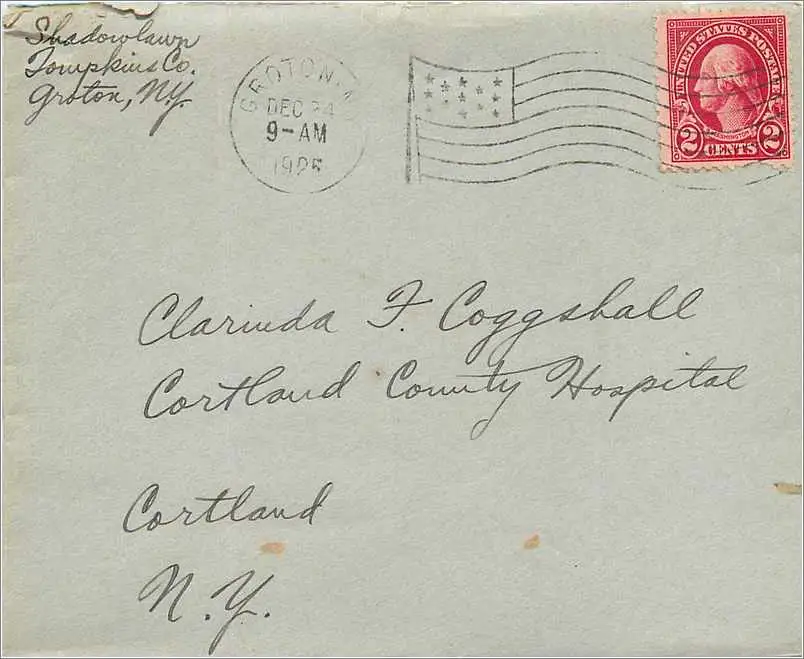 Shadowlawn
Tompkins Co.
Groton, N.Y.
GROTON, N
DEC 24
9-AM
1925
UNITED STATES POSTAGE
WASHINGTON
2 CENTS 2
Clarinda F. Coggshall
Cortland County Hospital
Cortland
N.Y.